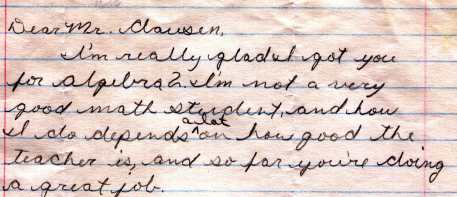 Dear Mr. Clausen,
I'm really glad I got you
for Algebra 2. I'm not a very
good math student, and how
I do depends alot on how good the
teacher is, and so far you're doing
a great job.